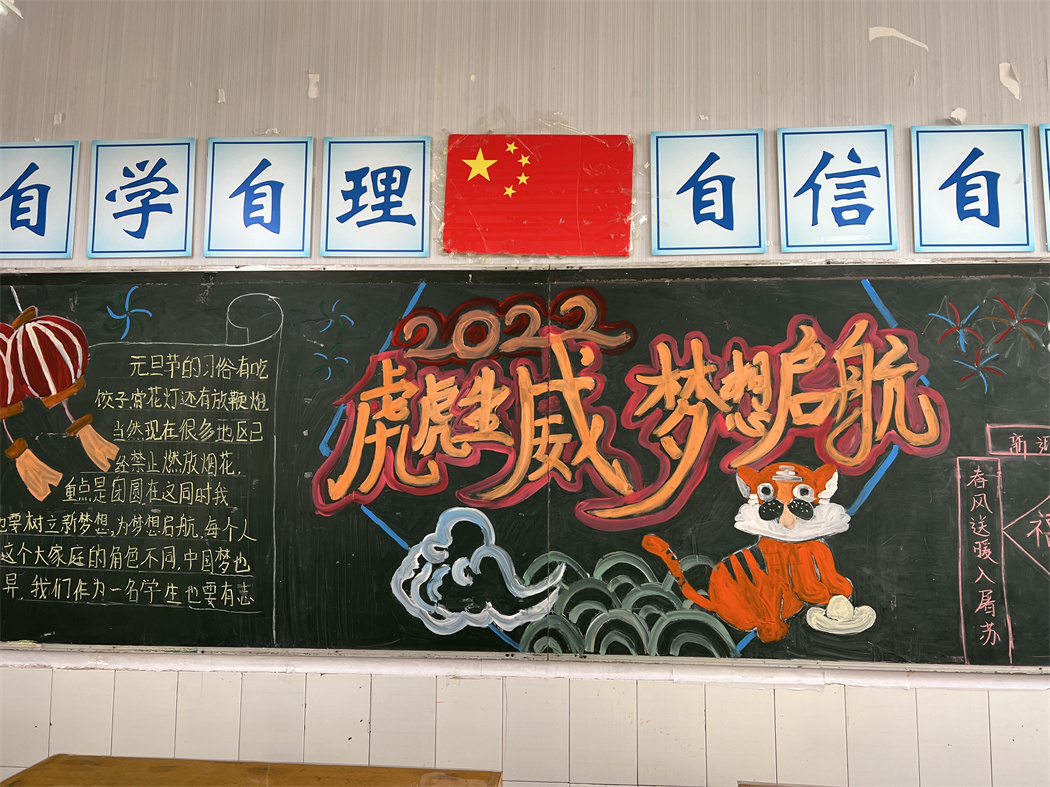 自学自理
自信自
2022
虎虎生威 梦想启航
元旦节的习俗有吃
饺子,赏花灯还有放鞭炮
当然现在很多地区已
经禁止燃放烟花.
重点是团圆在这同时我
也要树立新梦想,为梦想启航,每个人
这个大家庭的角色不同,中国梦也
异.我们作为一名学生也要有志
新
春风送暖入屠苏
福